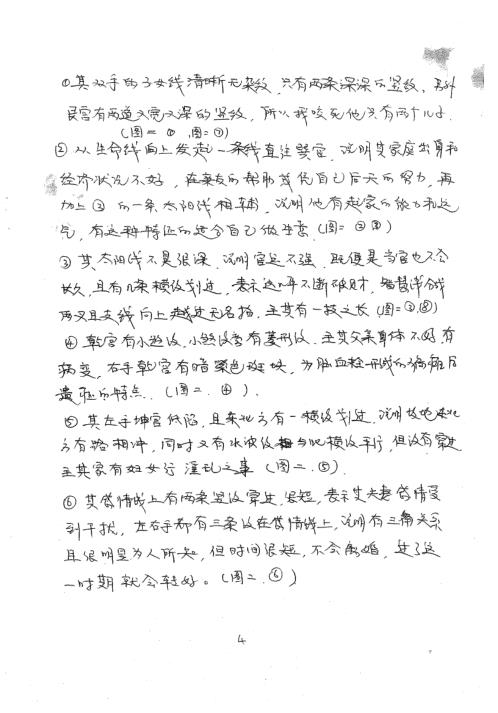 ①其双手的子女线清晰无杂纹,只有两条深深的竖纹,另外
艮宫有两道又宽又深的竖纹,所以我咬死他只有两个儿子.
(图二 ① 图=⑦)
②从生命线向上发起一条线直往巽宫,说明其家庭出身和
经济状况不好,在亲友的帮助或凭自己后天的努力,再
加上③的一条太阳线相辅,说明他有起家的能力和运
气,有这种特征的适合自己做生意(图=②③)
③其太阳线不是很深,说明官运不强,既便是当官也不会
长久,且有几条横纹划过,表示这几年不断破财,
两叉且支线向上越过无名指,主其有一技之长(图=③,⑧)
④乾宫有小遊纹,小遊纹旁有菱形纹,主其父亲身体不好有
病变,右手乾宫有暗 色斑块,为脑血栓形成的病痛后
遗症的特点.(图二.④).
⑤其左手坤宫低陷,且东北方有一横纹划过,说明坟地东北
方有路相冲,同时又有水波纹与此横纹平行,但没有穿过
主其家有妇女行淫乱之事(图二.⑤).
⑥其感情线上有两条竖纹穿过,很短,表示丈夫妻感情受
到干扰,左右手都有三条纹在感情线上,说明有三角关系
且很明显为人所知,但时间很短,不会离婚,过了这
一时期就会转好。(图二.⑥)
4